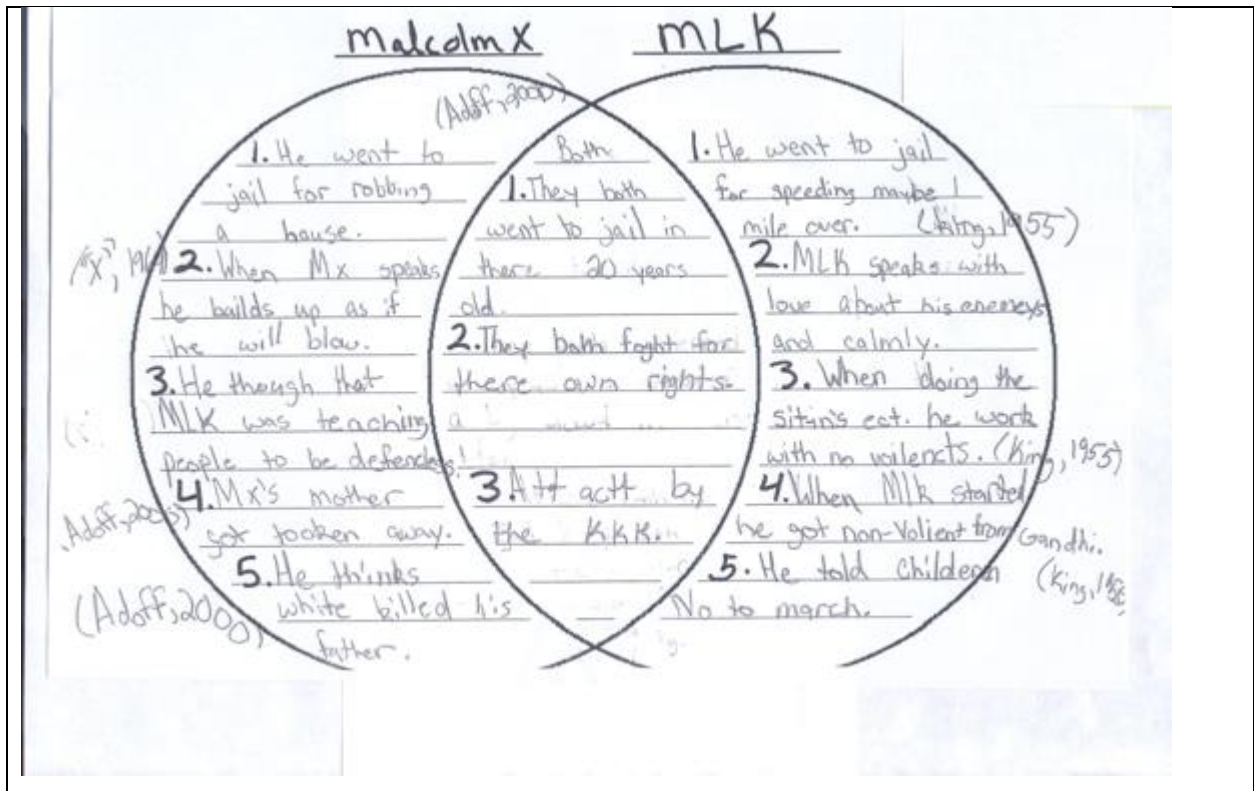 Malcolm X
MLK
(Adoff, 2000)
1. He went to
jail for robbing
a house.
("X", 196
2. When Mx speaks
he builds up as if
he will blow.
3. He though that
MLK was teaching
people to be defendess!
4. Mx's mother
got tooken away.
Adoff, 2000)
5. He thinks
white billed his
father.
(Adoff, 2000)
Both
1. They both
went to jail in
there 20 years
old.
2. They both foght for
there own rights.
a
3. Att actt by
the KKK.
1. He went to jail
for speeding maybe 1
mile over. (king, 1955)
2. MLK speaks with
love about his enemeys
and calmly.
3. When doing the
sit-in's ect. he work
with no voilencts. (King, 1955)
4. When Mlk started
he got non-Volient from Gandhi.
5. He told childern
No to march.
(King, 19